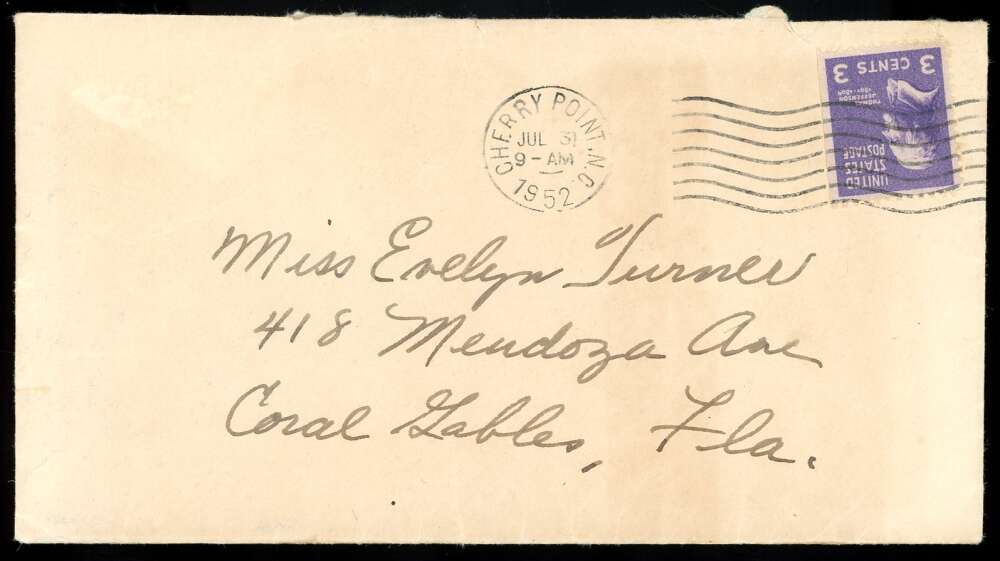 CHERRY POINT, N.C.
JUL 31
9 - AM
1952
UNITED
STATES
POSTAGE
THOMAS
JEFFERSON
1801-1809
3 CENTS 3
Miss Evelyn Turner
418 Mendoza Ave
Coral Gables, Fla.